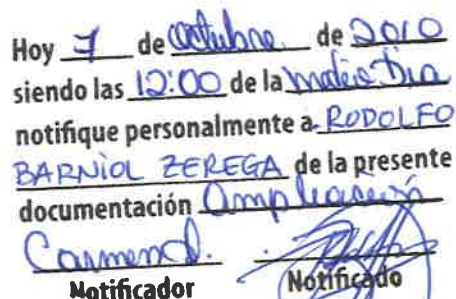 Hoy 7 de Octubre de 2010
siendo las 12:00 de la medio Dia
notifique personalmente a RODOLFO
BARNIOL ZEREGA de la presente
documentación Ampliación
Carmen D.
Notificador Notificado